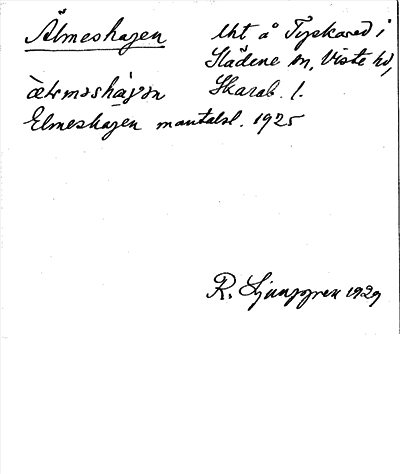 Älmeshagen lht å Tyskared i
Slädene sn, Viste hd,
Skarab. l.
Elmeshagen mantalsl. 1925
R. Ljunggren 1929